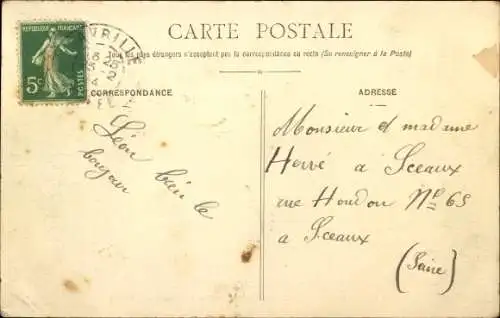 CARTE POSTALE
Tous les pays étrangers n'acceptent pas la correspondance au recto (Se renseigner à la Poste)
REPUBLIQUE FRANÇAISE
5c
POSTES
CORRESPONDANCE
ADRESSE
Léon bien le
bonjour
Monsieur et madame
Hervé a Sceaux
rue Houdon No 65
a Sceaux
(Seine)